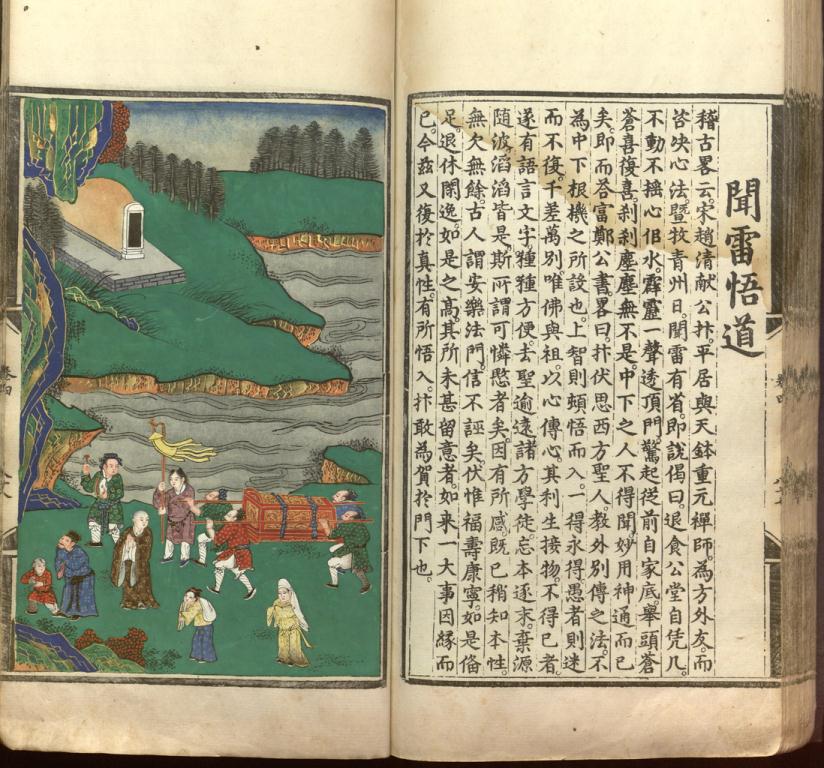 聞雷悟道
稽古畧云。宋趙清献公抃。平居與天鉢重元禪師。為方外友。而
咨决心法。暨牧青州日。聞雷有省。即說偈曰。退食公堂自凭几。
不動不搖心佀水。霹靂一聲透頂門。驚起従前自家底。舉頭蒼
蒼喜復喜。刹刹塵塵無不是。中下之人不得聞。妙用神通而已
矣。即而荅富鄭公書畧曰。抃伏思西方聖人。教外別傳之法。不
為中下根機之所設也。上智則頓悟而入。一得永得。愚者則迷
而不復。千差萬別。唯佛與祖。以心傳心。其利生接物。不得已者。
遂有語言文字。種種方便。去聖逾遠。諸方學徒。忘本逐末。棄源
随波。滔滔皆是。斯所謂可憐愍者矣。因有所感。既已稍知本性。
無欠無餘。古人謂安樂法門。信不誣矣。伏惟福壽康寧。如是俻
足。退休閑逸。如是之高。其所未甚留意者。如来一大事因縁而
已。今兹又復於真性。有所悟入。抃敢為賀於門下也。
卷四